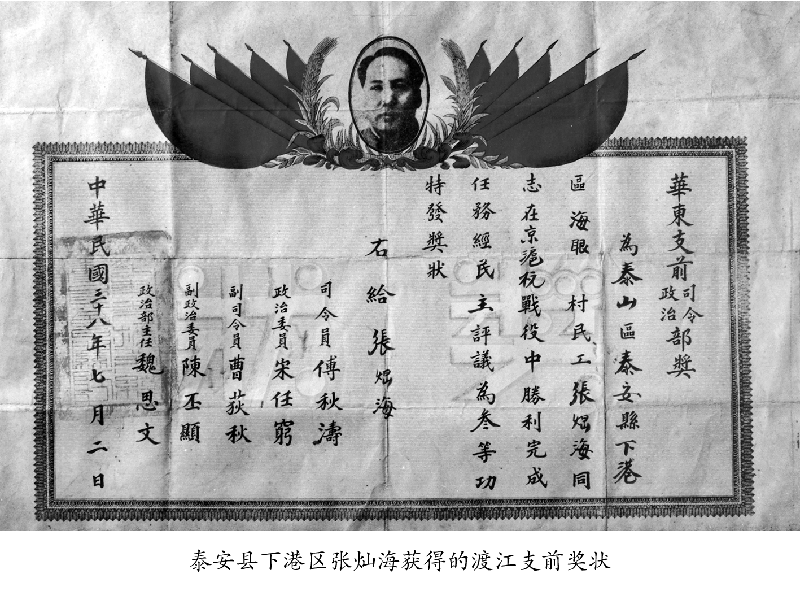 華東支前司令政治部獎
為泰山區泰安縣下港
區海眼村民工張燦海同
志在京滬杭戰役中勝利完成
任務經民主評議為叁等功
特發獎狀
右給張燦海
司令員傅秋濤
政治委員宋任窮
副司令員曹荻秋
副政治委員陳丕顯
政治部主任魏思文
中華民國三十八年七月二日
泰安县下港区张灿海获得的渡江支前奖状